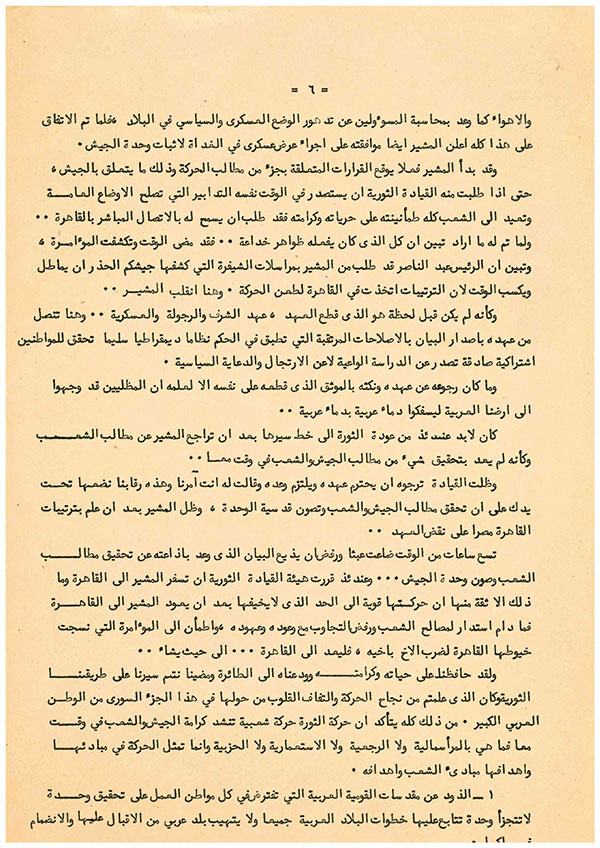 = ٦ =
والاهواء كما وعد بمحاسبة المسوءولين عن تدهور الوضع العسكرى والسياسي في البلاد ، فلما تم الاتفاق
على هذا كله اعلن المشير ايضا موافقته على اجراء عرض عسكرى في الغداة لاثبات وحدة الجيش .
وقد بدأ المشير فعلا يوقع القرارات المتعلقة بجزء من مطالب الحركة وذلك ما يتعلق بالجيش ،
حتى اذا طلبت منه القيادة الثورية ان يستصدر في الوقت نفسه التدابير التي تصلح الاوضاع العامة
وتعيد الى الشعب كله طمأنينته على حرياته وكرامته فقد طلب ان يسمح له بالاتصال المباشر بالقاهرة ..
ولما تم له ما اراد تبين ان كل الذى كان يفعله ظواهر خداعة .. فقد مضى الوقت وتكشفت الموءامرة ،
وتبين ان الرئيس عبد الناصر قد طلب من المشير بمراسلات الشيفرة التي كشفها جيشكم الحذر ان يماطل
ويكسب الوقت لان الترتيبات اتخذت في القاهرة لطعن الحركة . وهنا انقلب المشير ..
وكأنه لم يكن قبل لحظة هو الذى قطع العهد ، عهد الشرف والرجولة والعسكرية .. وهنا تنصل
من عهده باصدار البيان بالاصلاحات المرتقبة التي تطبق في الحكم نظاما ديمقراطيا سليما تحقق للمواطنين
اشتراكية صادقة تصدر عن الدراسة الواعية لاعن الارتجال والدعاية السياسية .
وما كان رجوعه عن عهده ونكثه بالموثق الذى قطعه على نفسه الا لعلمه ان المظليين قد وجهوا
الى ارضنا العربية ليسفكوا دماء عربية بدماء عربية ..
كان لابد عندئذ من عودة الثورة الى خط سيرها بعد ان تراجع المشير عن مطالب الشعب
وكأنه لم يعد بتحقيق شيء من مطالب الجيش والشعب في وقت معا ..
وظلت القيادة ترجوه ان يحترم عهده ويلتزم وعده وقالت له انت آمرنا وهذه رقابنا نضعها تحت
يدك على ان تحقق مطالب الجيش والشعب وتصون قدسية الوحدة ، وظل المشير بعد ان علم بترتيبات
القاهرة مصرا على نقض العهد ..
تسع ساعات من الوقت ضاعت عبثا ورفض ان يذيع البيان الذى وعد باذاعته عن تحقيق مطالب
الشعب وصون وحدة الجيش ... وعندئذ قررت هيئة القيادة الثورية ان تسفر المشير الى القاهرة وما
ذلك الا ثقة منها ان حركتها قوية الى الحد الذى لا يخيفها بعد ان يعود المشير الى القاهرة
فما دام استدار لمصالح الشعب ورفض التجاوب مع وعوده وعهوده ، واطمأن الى الموءامرة التي نسجت
خيوطها القاهرة لضرب الاخ باخيه ، فليعد الى القاهرة ... الى حيث يشاء ..
ولقد حافظنا على حياته وكرامته وودعناه الى الطائرة ومضينا نتم سيرنا على طريقنا
الثورية وكان الذى علمتم من نجاح الحركة والتفاف القلوب من حولها في هذا الجزء السورى من الوطن
العربي الكبير . من ذلك كله يتأكد ان حركة الثورة حركة شعبية تنشد كرامة الجيش والشعب في وقت
معا فما هي بالرأسمالية ولا الرجعية ولا الاستعمارية ولا الحزبية وانما تمثل الحركة في مبادئها
واهدافها مبادىء الشعب واهدافه .
١ ـ الذود عن مقدسات القومية العربية التي تفترض في كل مواطن العمل على تحقيق وحدة
لاتتجزأ وحدة تتابع عليها خطوات البلاد العربية جميعا ولا يتهيب بلد عربي من الاقبال عليها والانضمام